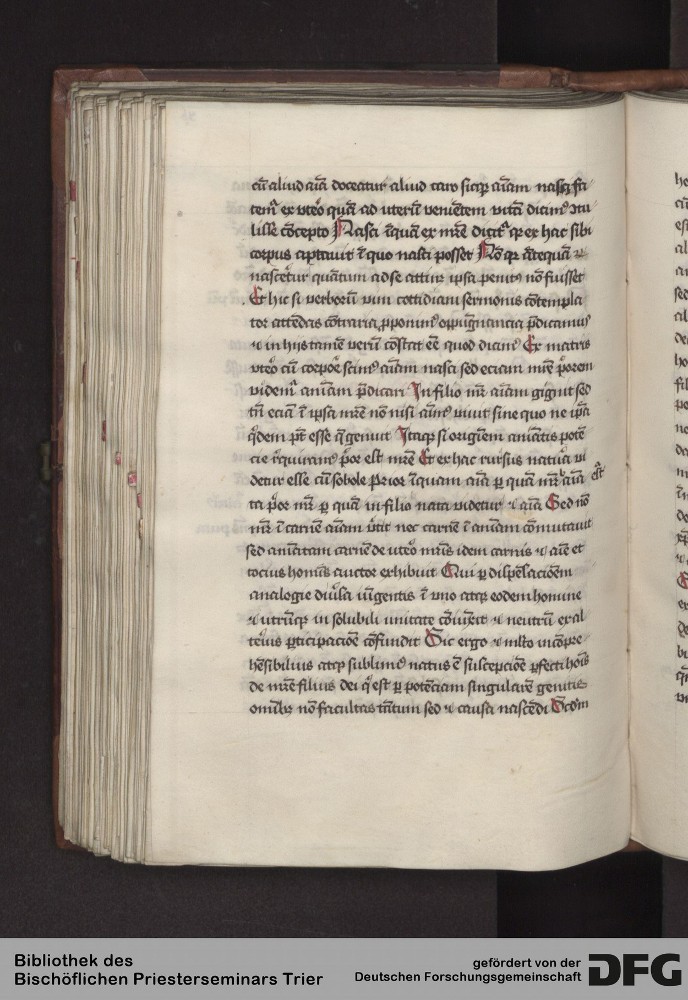 cū aliud aīa doceatur aliud caro sicq̄ aīam nasci fa
temʳ ex vtero quā ad uterū venientem vitā dicimꝰ
cōcepto Nasci īquā ex mr̄e digit᷑ qꝛ ex hac sibi
corpus aptauit ī quo nasci posset Nō qꝛ ātequā
nascetur quātum ad se attinꝫ ipsa penitꝰ nō fuisset
Et hic si verborū vim cottidiani sermonis cōtempla
tor attēdas cōtraria ꝓponimꝰ oppugnancia p̄dicamꝰ
⁊ in hijs tamē verū cōstat eē quod dicimꝰ Ex matris
vtero cū corpore scimꝰ aīam nasci sed eciam mr̄e
videmʳ aīam p̄dicari In filio mʳ aīam gignit sed
tn̄ eciā ī ipsa mr̄e nō nisi aīmꝰ viuit sine quo ne ip̄a
qͥdem pt̄ esse q̄ genuit Itaqꝫ si originem
est mr̄e Et ex hac rursus natiua vi
detur esse cū sobole prior īquam aīa ꝑ quā mʳ aīa est
ta p̄or mʳ ꝑ quā in filio nata videtur ⁊ aīa Sed nō
mʳ ī carnē aīam v̄tit nec carnē ī aīam cōmutauit
sed carnē de vtero mr̄is idem carnis ⁊ aīe et
tocius hominis auctor exhibuit Qui ꝑ dispēsacionem
analogie diu̓sa iūgentis ī vno atqꝫ eodem homine
⁊ utrūqꝫ in solubili unitate cōiūxit ⁊ neutrū ex al
terius ꝑticipacione cōfundit Sic ergo ⁊ mlto incōpre
hēsibilius atqꝫ sublimiꝰ natus ē suscepcione ꝑfecti hoīs
de mr̄e filius dei qͥ est ꝑ potēciam singularē genitis
omībꝫ nō facultas tātum sed ⁊ causa nascēdi
Bibliothek des
Bischöflichen Priesterseminars Trier
gefördert von der
Deutschen Forschungsgemeinschaft
DFG